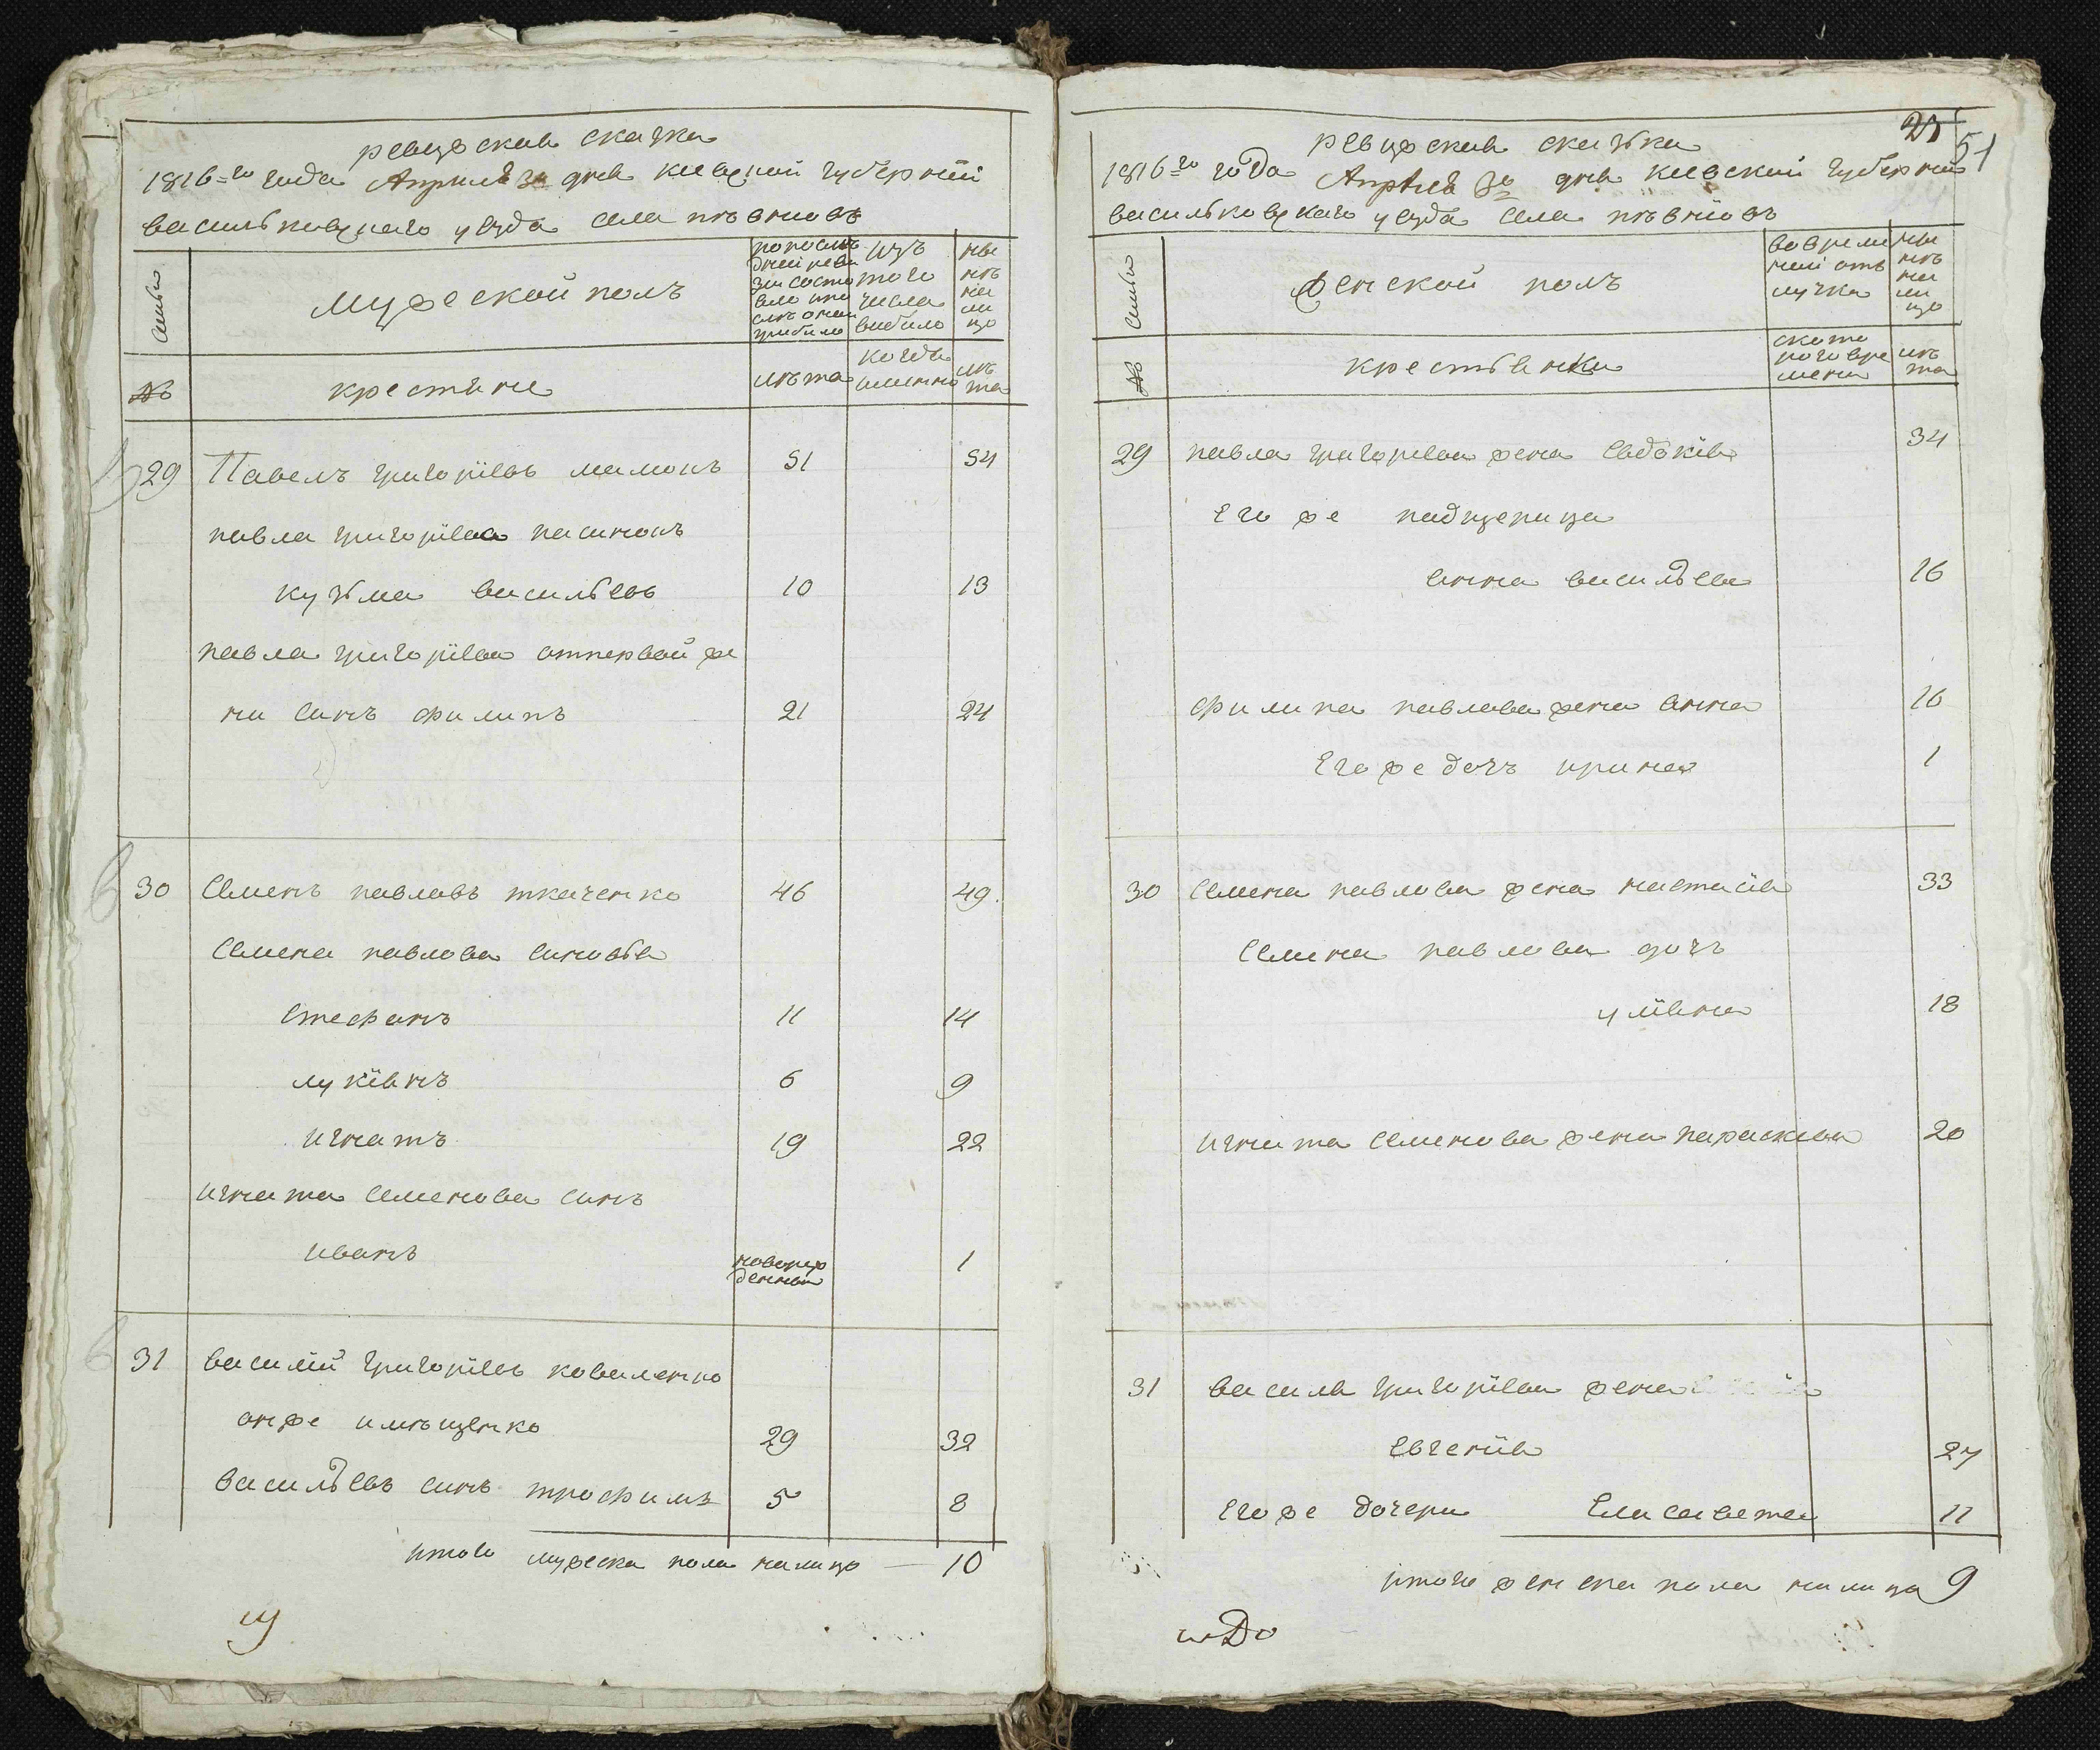 ревизская скаска
1816=го года Апреля 30 дня киевской губернии
васильковского уезда села пъвновъ
семьи
мужеской полъ
по последней ревизии состояло и после оной прибыло
изъ того числа выбыло
ныне на лицо
№
крестяне
лъта
когда именно
лъта
29 Павелъ григоріевъ мамонъ 51 54
павла григоріева пасинокъ
кузма васильевъ 10 13
павла григоріева отпервой же
ни синъ филипъ 21 24
30 Семенъ павловъ ткаченко 46 49.
Семена павлова синовья
Стефанъ 11 14
лукіянъ 6 9
игнатъ 19 22
игната Семенова синъ
иванъ новорож
денный 1
31 василій григоріевъ коваленко
онже имъщенко 29 32
васильевъ синъ трофимъ 5 8
итого мужеска пола налицо — 10
25
51
ревизская скаска
1816го года Апреля 30 дня киевской губернии
васильковского уезда села пъвновъ
семьи
Женской полъ
во временной отлучке
ныне на лицо
№
крестьянки
с кото
рого вре
мени
лъта
29 павла григоріева жена Евдокія 34
Его же падщерица
анна васильева 16
филипа павлова жена анна 16
Его же дочъ ирина 1
30 Семена павлова жена настасія 33
Семена павлова дочъ
уліяна 18
игната Семенова жена параскива 20
31 василя григоріева жена
Евгенія 27
Его же дочери Елисавета 11
итого женска пола налицо 9